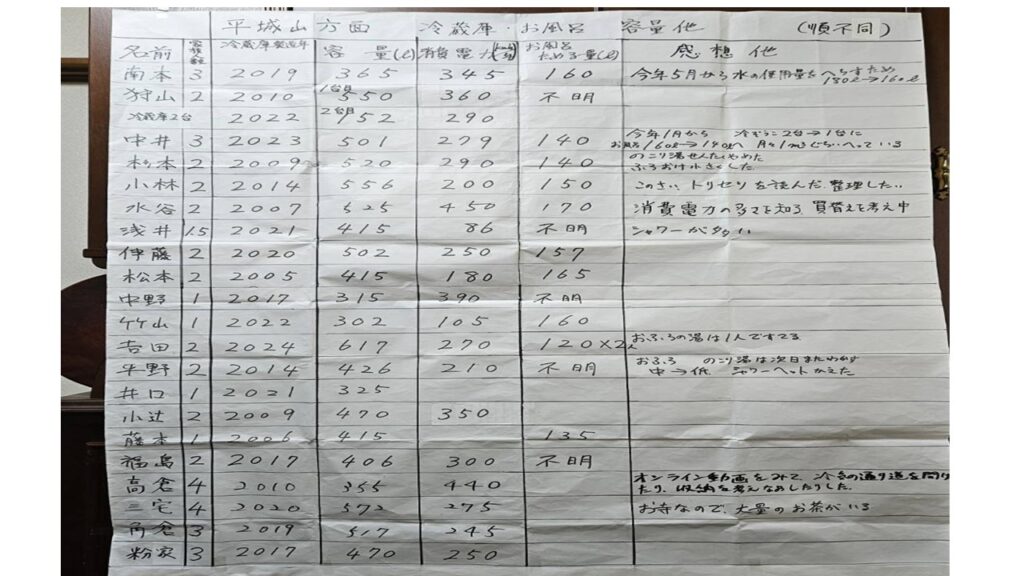 平城山方面 冷蔵庫・お風呂 容量他 (順不同)
名前 家族数 冷蔵庫製造年 容量(ℓ) 消費電力 お風呂ためる量(ℓ) 感想他
南本 3 2019 365 345 160 今年5月から水の使用量をへらすため 180ℓ→160ℓ
狩山 2 2010 1台目 550 360 不明
冷蔵庫2台 2022 2台目 152 290
中井 3 2023 501 279 140 今年1月から 冷ぞうこ2台→1台に
お風呂160ℓ→140ℓへ へっている
杉本 2 2009 520 290 140 のこり湯せんたくやめた
ふろおけ小さくした
小林 2 2014 556 200 150 このさい、トリセツを読んだ.整理した..
水谷 2 2007 525 450 170 消費電力の多さを知る 買替えを考え中
浅井 1.5 2021 415 86 不明 シャワーが多い
伊藤 2 2020 502 250 157
松本 2 2005 415 180 165
中野 1 2017 315 390 不明
竹山 1 2022 302 105 160
吉田 2 2024 617 270 120×2人 おふろの湯は1人ですてる
平野 2 2014 426 210 不明 おふろ のこり湯は次日またわかす
中→低 シャワーヘットかえた
井口 1 2021 325
小辻 2 2009 470 350
藤本 1 2006 415 135
福島 2 2017 406 300 不明
高倉 4 2010 355 440 オンライン動画をみて、冷気の通り道を開けたり、収納を考えなおしたりした。
三宅 4 2020 572 275 お寺なので、大量のお茶がいる
角倉 3 2019 517 245
粉家 3 2017 470 250